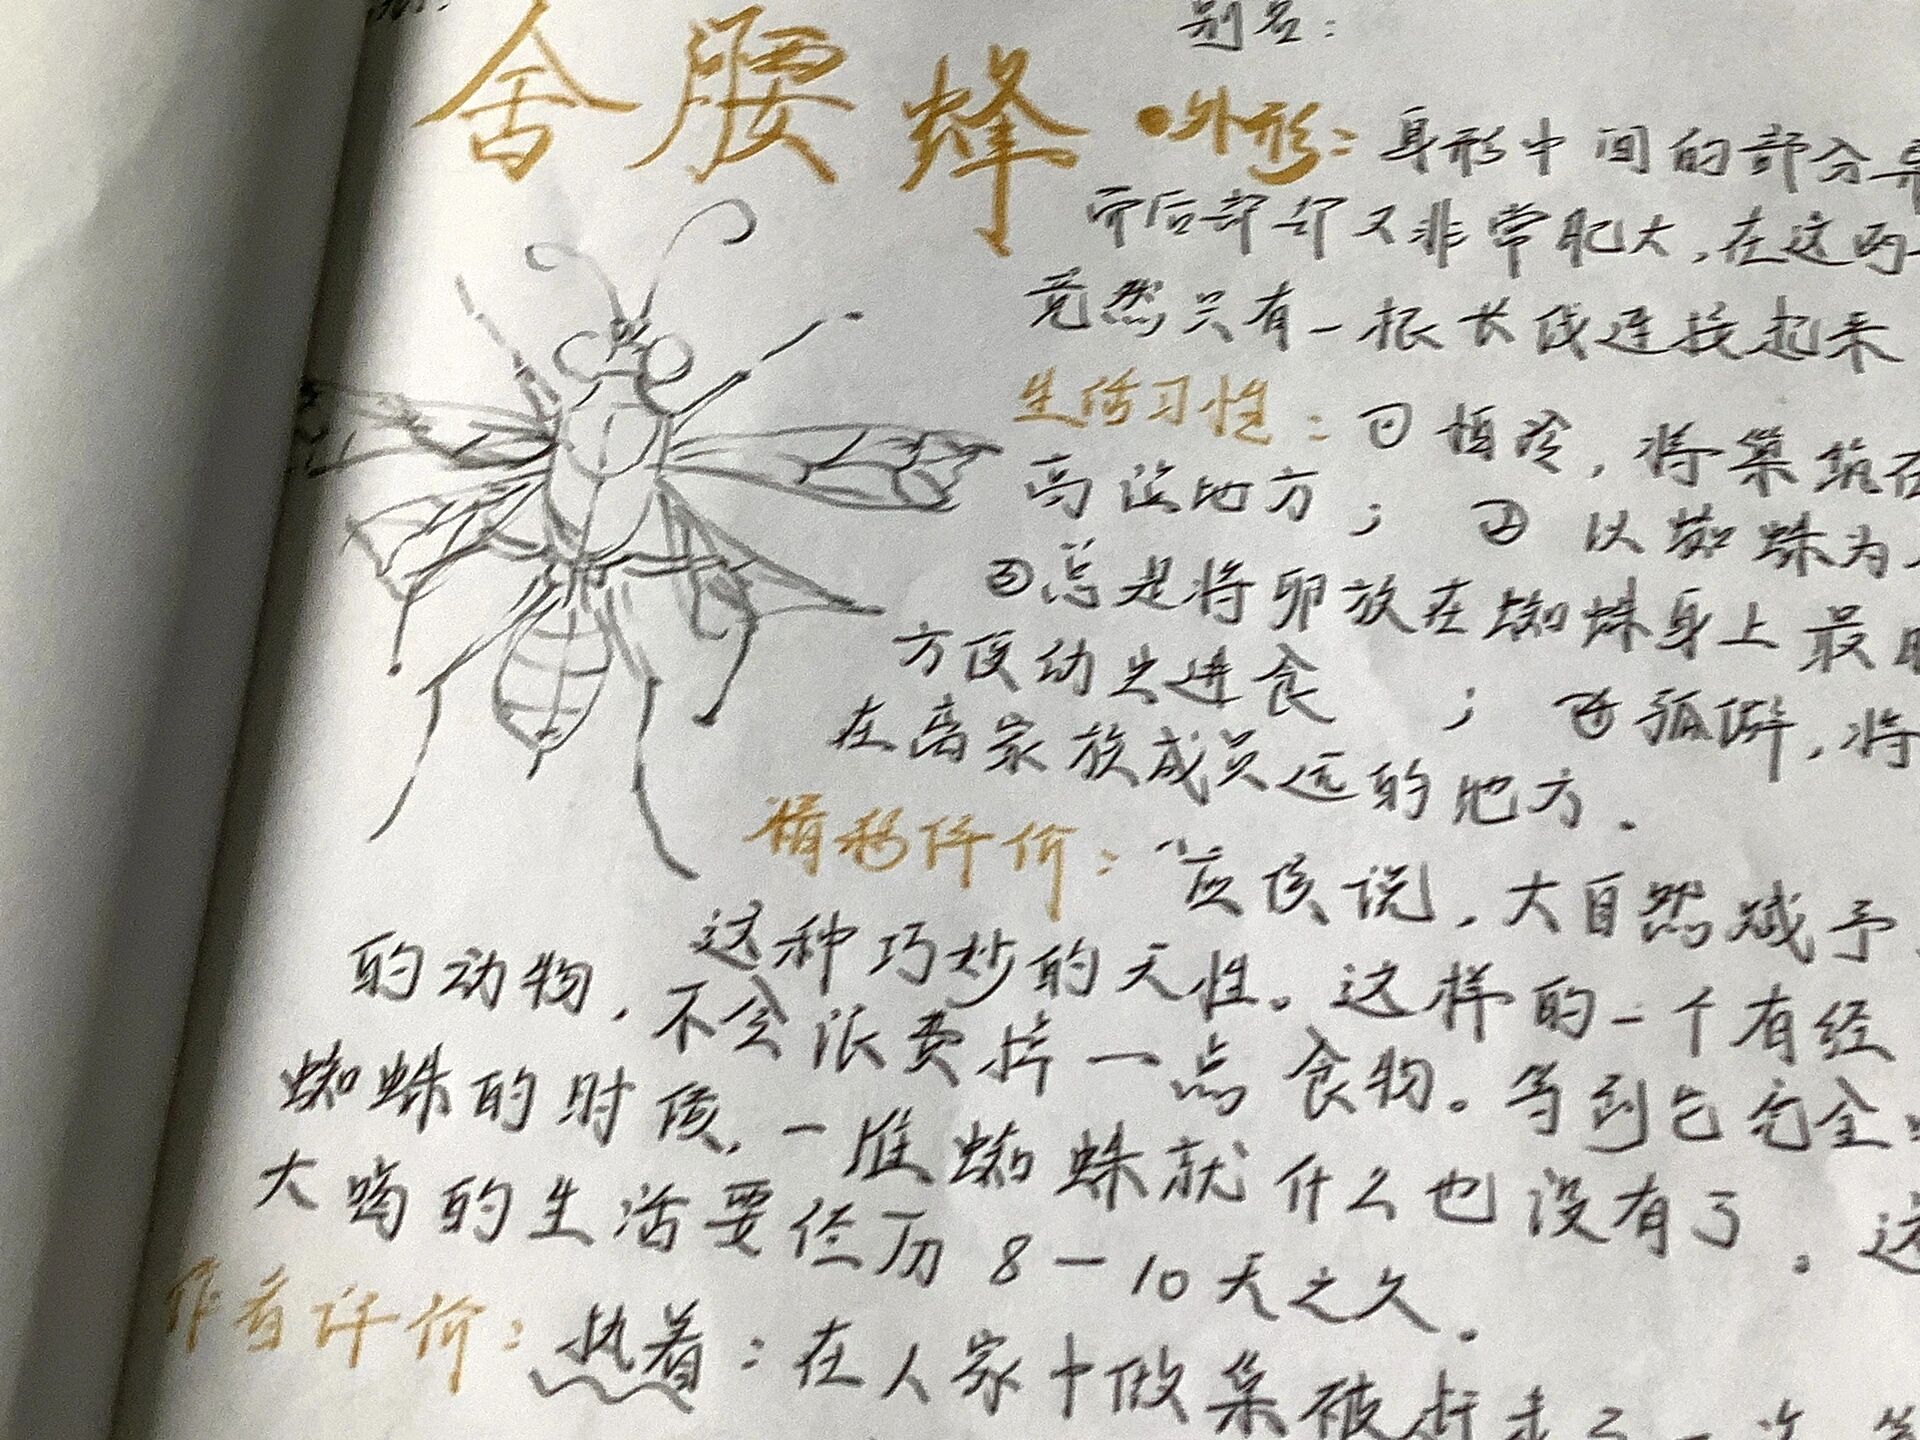 舍腰蜂
别名：
●外形：身形中间的部分
而后部却又非常肥大，在这两
竟然只有一根长线连接起来
生活习性：①怕冷，将巢筑在
高温地方；②以蜘蛛为
③总是将卵放在蜘蛛身上最
方便幼虫进食；④孤僻，将
在离家族成员远的地方．
精彩评价：“应该说，大自然赋予
这种巧妙的天性。这样的一个有经
的动物，不会浪费掉一点食物。等到它完全
蜘蛛的时候，一堆蜘蛛就什么也没有了。这
大喝的生活要经历8－10天之久．
作者评价：执着：在人家中做巢被赶走了一次